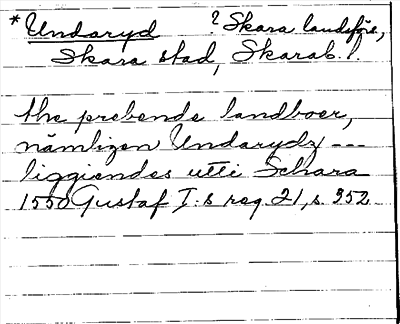 *Undaryd ? Skara landsförs.,
Skara stad, Skarab. l.
the prebende landboer,
nämligen Undarydz ---
liggiendes utti Schara
1550 Gustaf I:s reg. 21, s. 352.